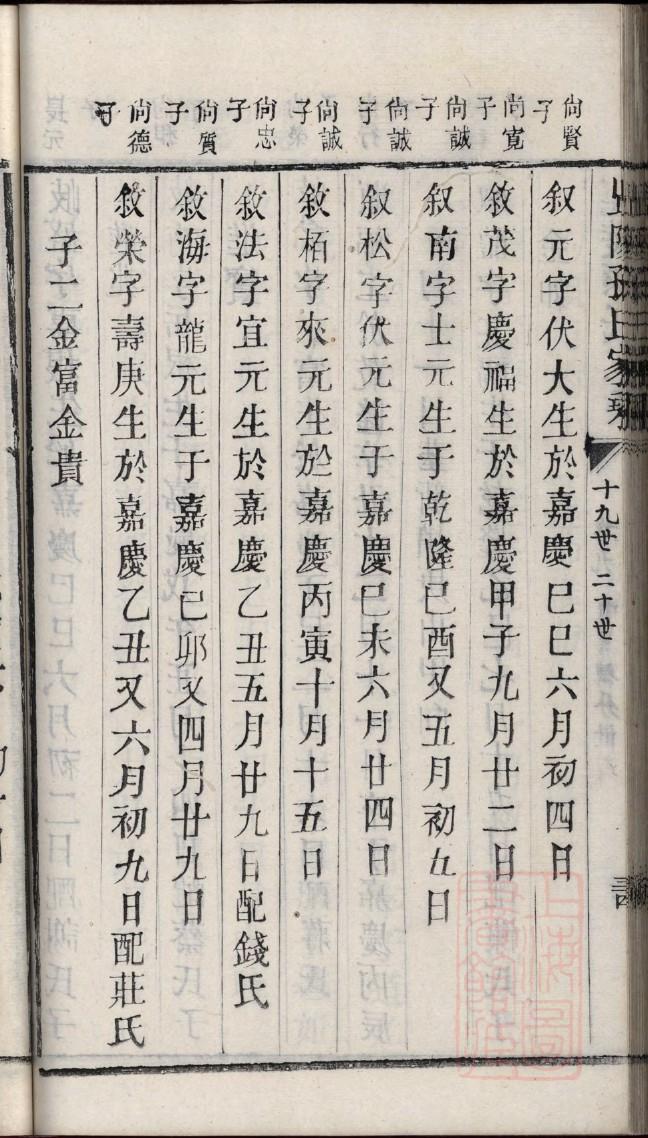 孫氏家乘
十九世 二十世
尙賢子
叙元字伏大生於嘉慶己巳六月初四日
尙寬子
敘茂字慶福生於嘉慶甲子九月廿二日
尙誠子
叙南字士元生于乾隆己酉又五月初五日
尙誠子
叙松字伏元生于嘉慶己未六月廿四日
尙誠子
敘栢字來元生於嘉慶丙寅十月十五日
尙忠子
敘法字宜元生於嘉慶乙丑五月廿九日配錢氏
尙質子
敘海字龍元生于嘉慶己卯又四月廿九日
尙德子
敘榮字壽庚生於嘉慶乙丑又六月初九日配莊氏
子二金富金貴